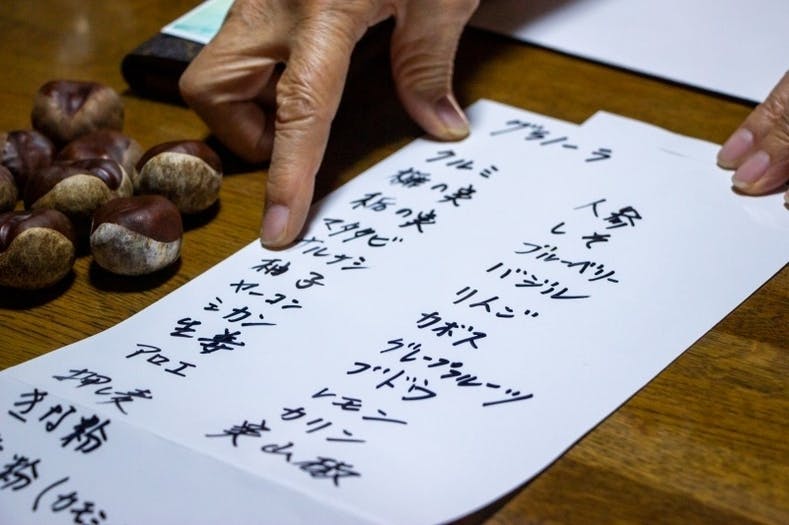 グラノーラ
クルミ
の実
栃の実
マタタビ
ルナシ
柚子
ヤーコン
ミカン
生姜
アロエ
押し麦
きな粉
粉(カモミ
人参
しそ
ブルーベリー
バジル
リンゴ
カボス
グレープフルーツ
ブドウ
レモン
カリン
実山椒